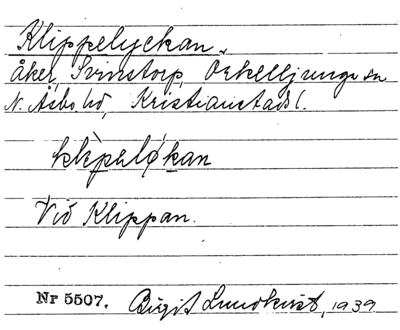 Klippelyckan.
åker, Svinstorp, Örkelljunga sn
N. Åsbo hd, Kristianstads l.
klèpəlø̀kan
Vid Klippan.
Nr 5507. Birgit Lundkvist, 1939